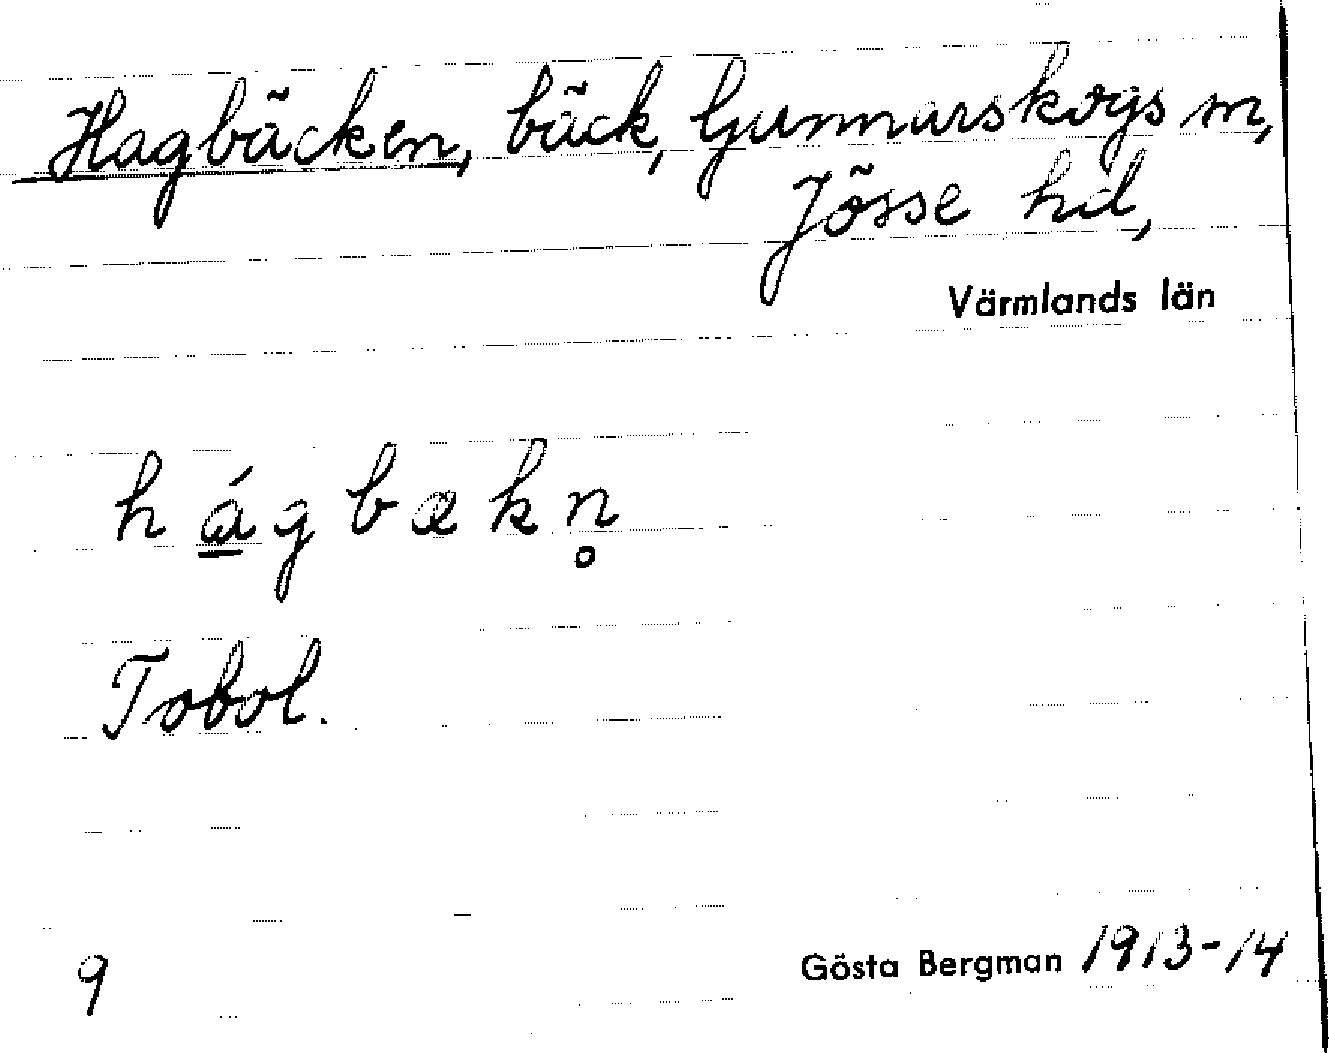 Hagbäcken, bäck, Gunnarskogs sn,
Jösse hd,
Värmlands län
há̱gbækn̥
Tobol.
9
Gösta Bergman 1913-14